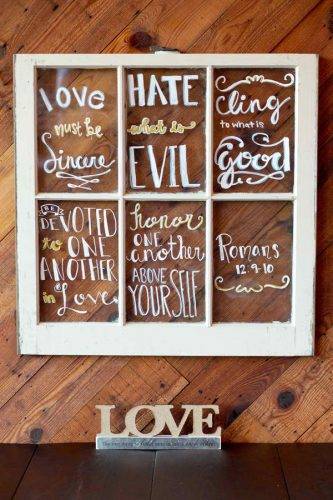 love
must be
Sincere
HATE
what is
EVIL
Cling
to what is
Good
BE
DEVOTED
to ONE
ANOTHER
in Love.
honor
ONE
another
ABOVE
YOURSELF
Romans
12:9-10
LOVE